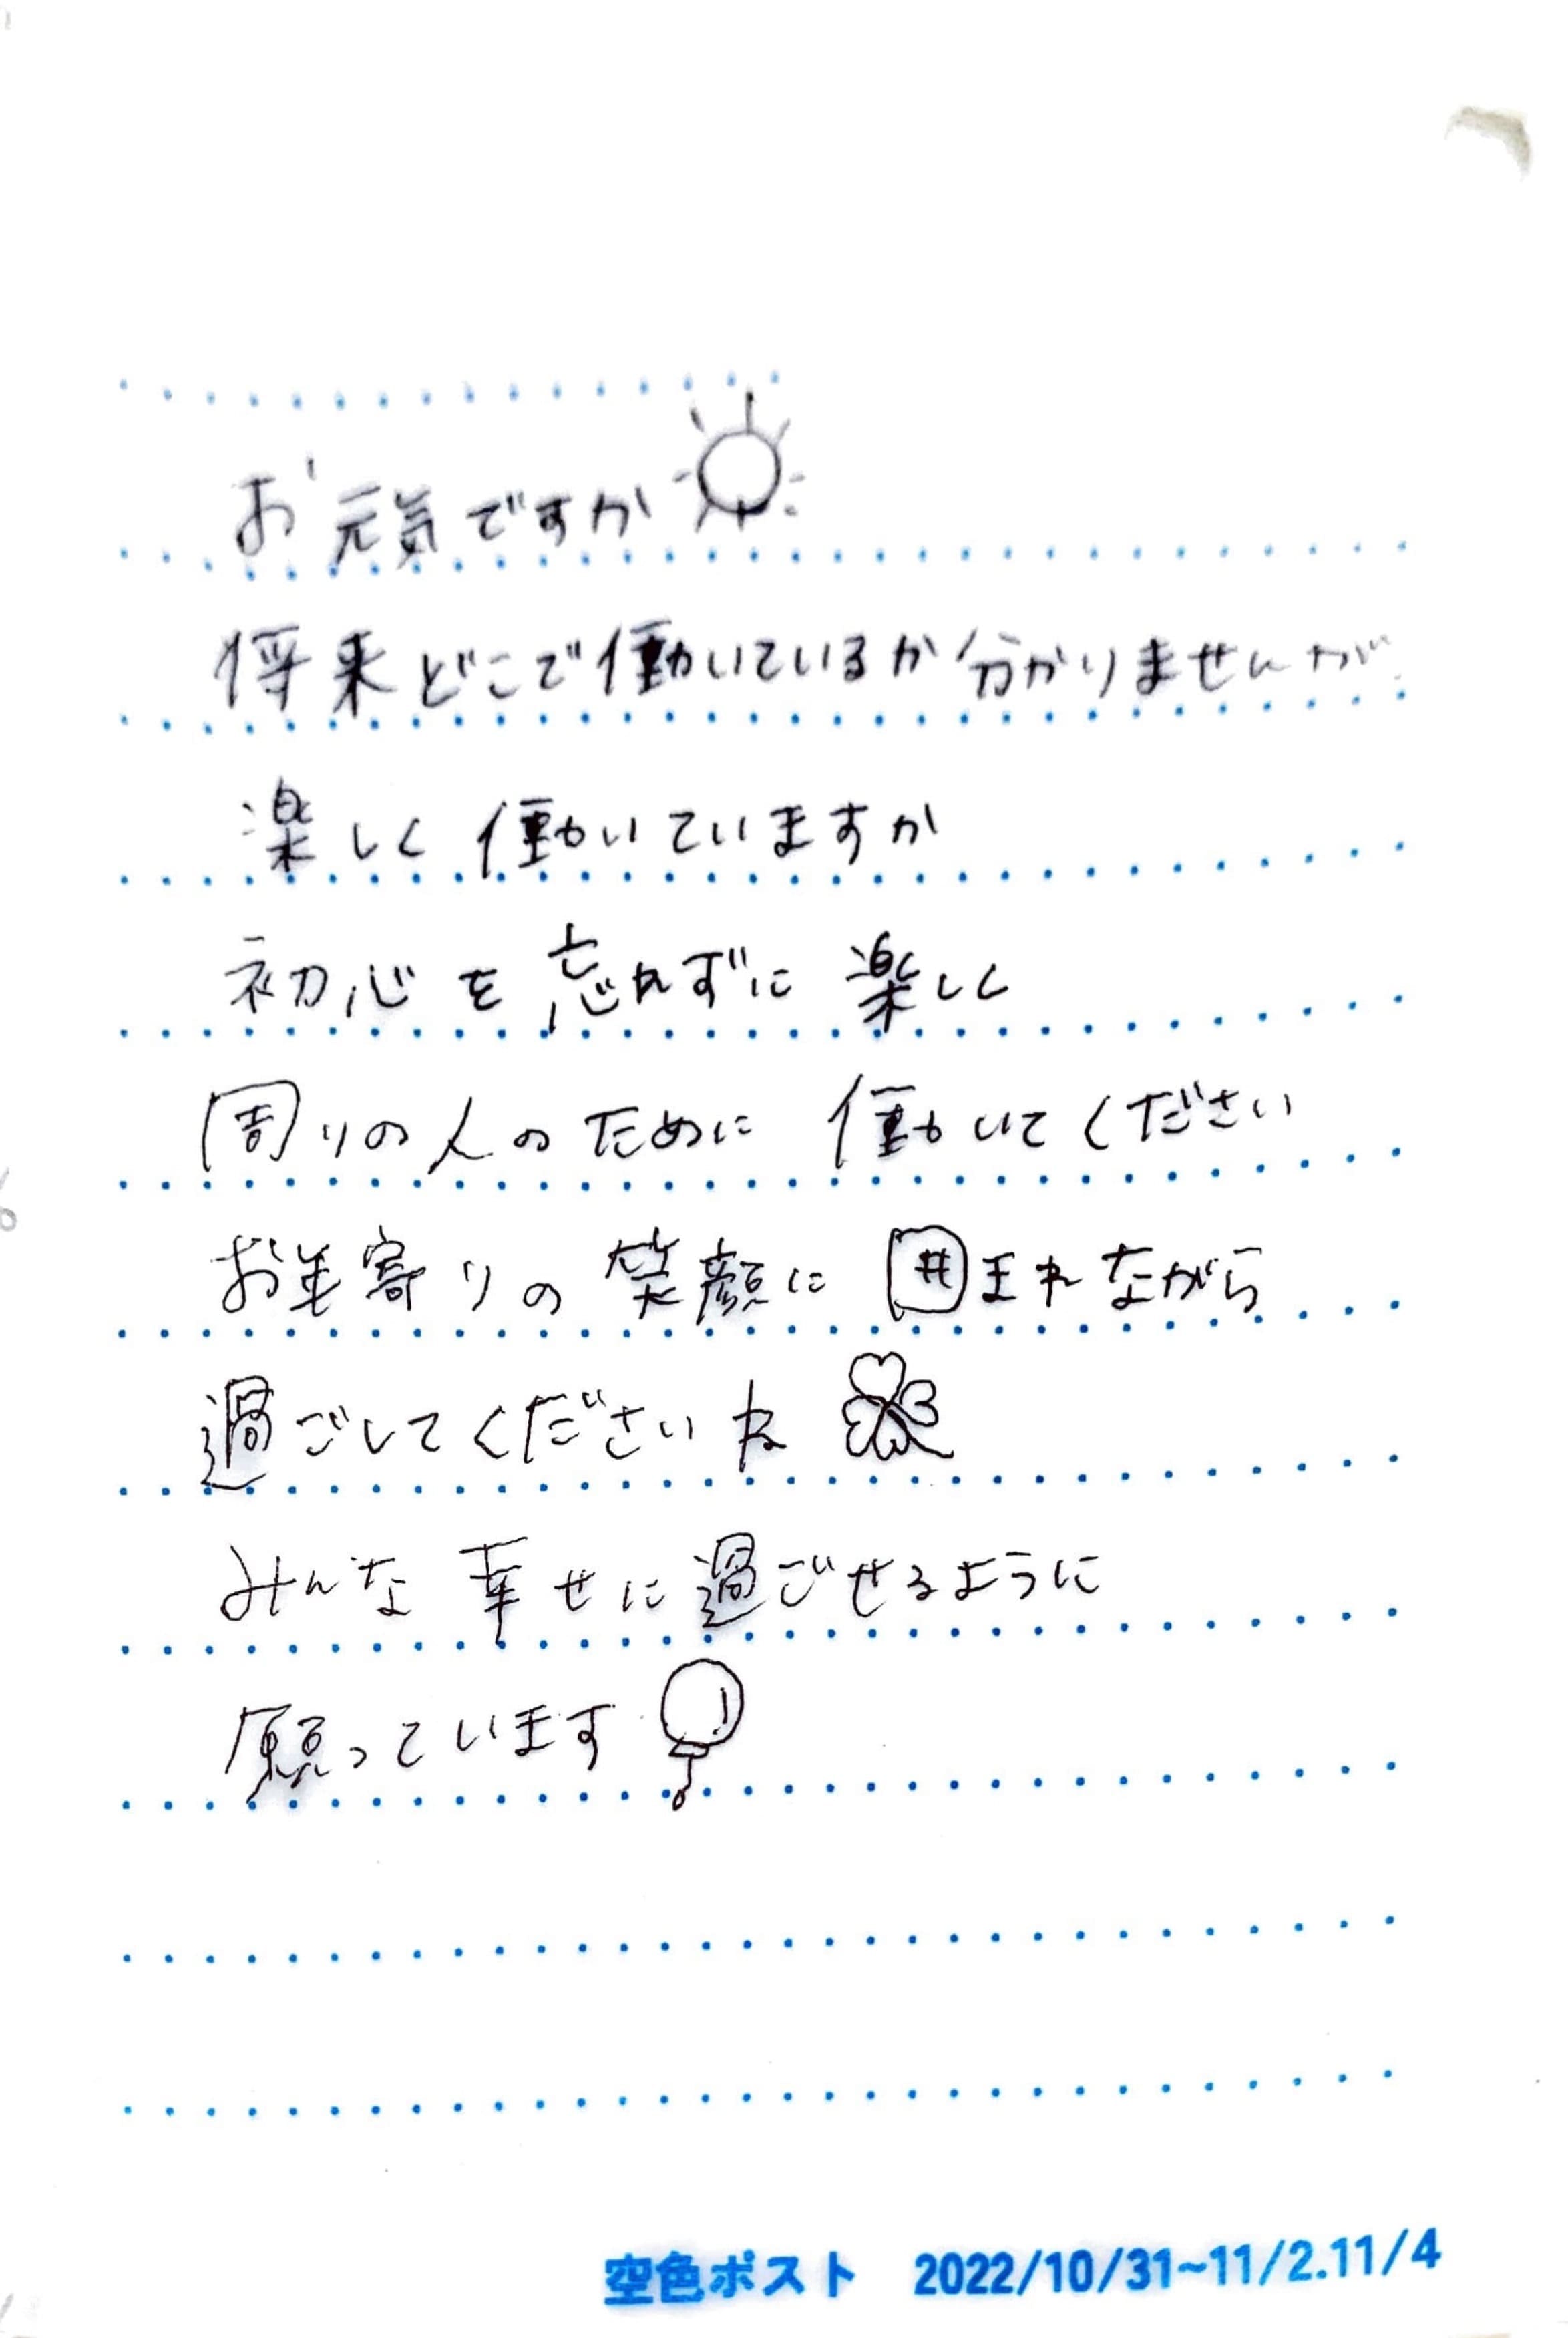 お元気ですか
将来どこで働いているか分かりませんが
楽しく働いていますか
初心を忘れずに楽しく
周りの人のために働いてください
お年寄りの笑顔に囲まれながら
過ごしてくださいね
みんな幸せに過ごせるように
願っています
空色ポスト 2022/10/31~11/2.11/4